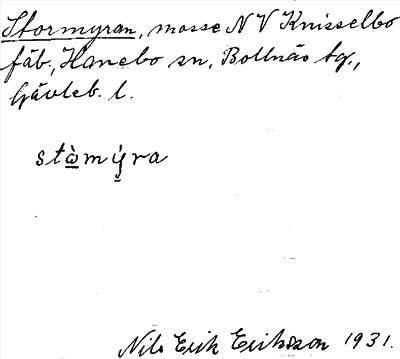 Stormyran, mosse NV Knisselbo
fäb., Hanebo sn, Bollnäs tg.,
Gävleb. l.
stò̲mý̲ra
Nils Erik Eriksson 1931.